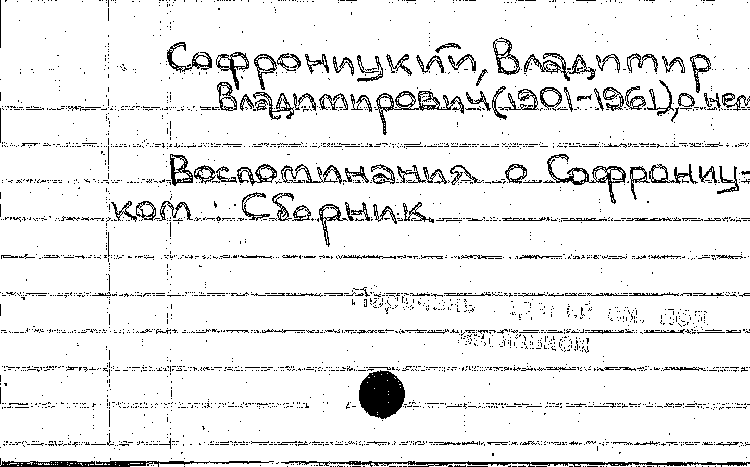 Софроницкий, Владимир
Владимирович (1901-1961), о нем
Воспоминания о Софрониц-
ком : Сборник.
см. под